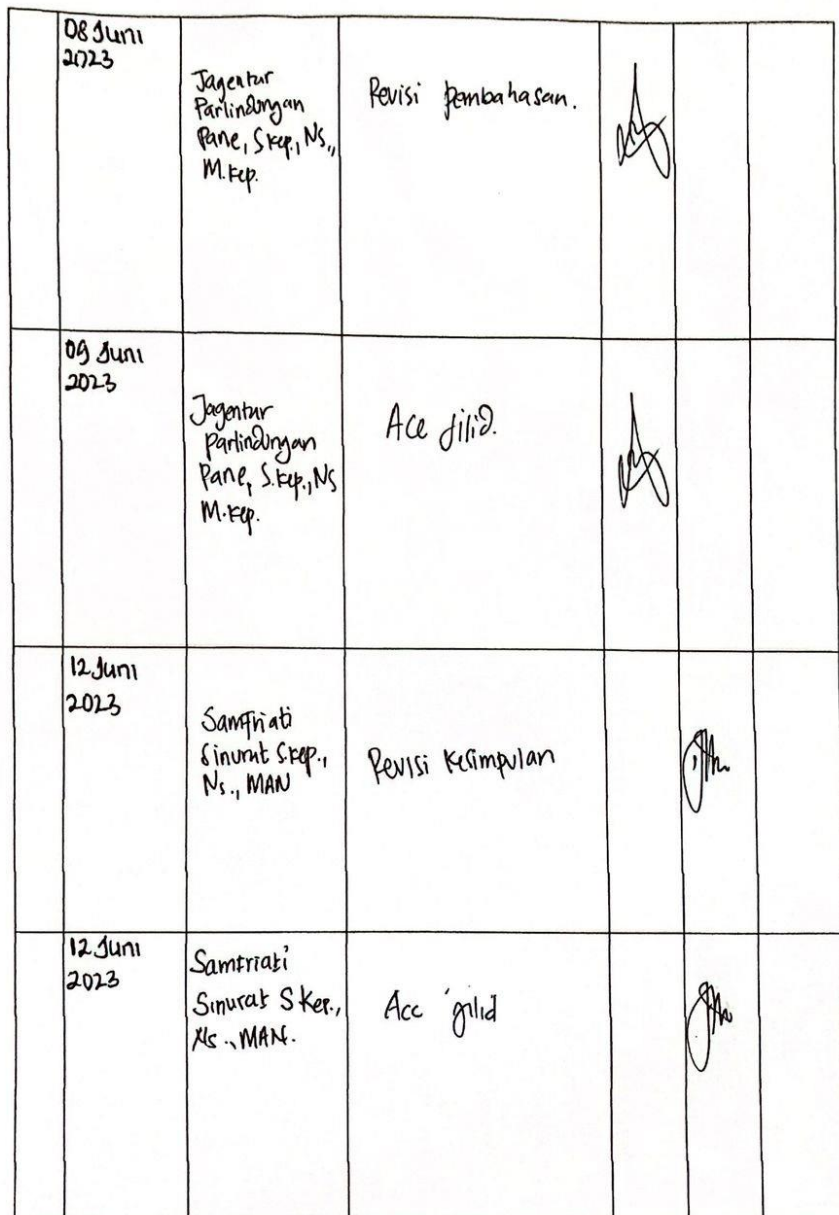 08 Juni
2023
Jagentur
Parlindungan
Pane, S.kep., Ns.,
M.kep.
Revisi pembahasan.
09 Juni
2023
Jagentur
Parlindungan
Pane, S.kep., Ns
M.kep.
Acc jilid.
12 Juni
2023
Samfriati
Sinurat S.kep.,
Ns., MAN
Revisi kesimpulan
12 Juni
2023
Samfriati
Sinurat S kep.,
Ns., MAN.
Acc jilid